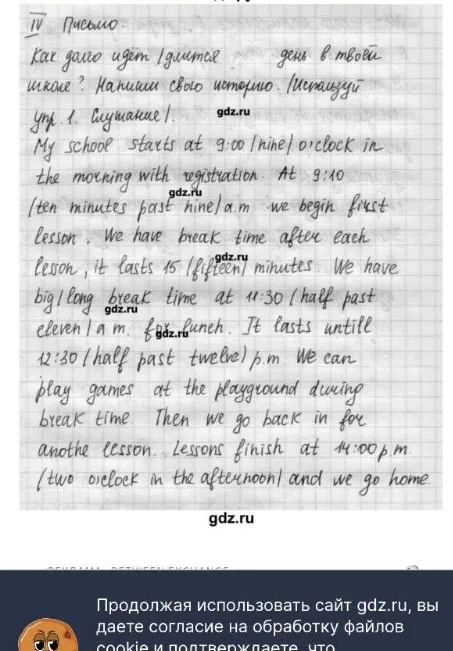 IV Письмо.
Как долго идёт / длится день в твоей
школе? Напиши свою историю. /Используй
упр. 1. Слушание/.
gdz.ru
My school starts at 9:00 /nine/ o'clock in
the morning with registration. At 9:10
gdz.ru
/ten minutes past nine/ a.m. we begin first
lesson. We have break time after each
gdz.ru
lesson, it lasts 15 /fifteen/ minutes. We have
big/long break time at 11:30 /half past
gdz.ru
eleven/ a.m. for lunch. It lasts untill
gdz.ru
12:30 /half past twelve/ p.m. We can
play games at the playground during
break time. Then we go back in for
anothe lesson. Lessons finish at 14:00 p.m.
/two o'clock in the afternoon/ and we go home.
gdz.ru
Продолжая использовать сайт gdz.ru, вы
даете согласие на обработку файлов
cookie и подтверждаете, что